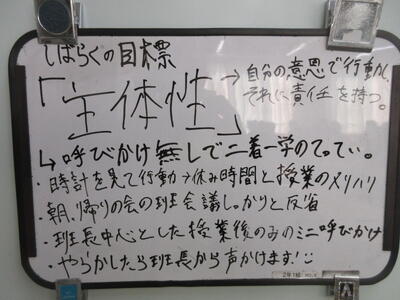 しばらくの目標
「主体性」
→自分の意思で行動し、
それに責任を持つ。
↳呼びかけ無しで二着一学のてってい。
・時計を見て行動→休み時間と授業のメリハリ
・朝、帰りの会の班会議しっかりと反省
・班長中心とした授業後のみのミニ呼びかけ
・やらかしたら班長から声かけます!
2年1組